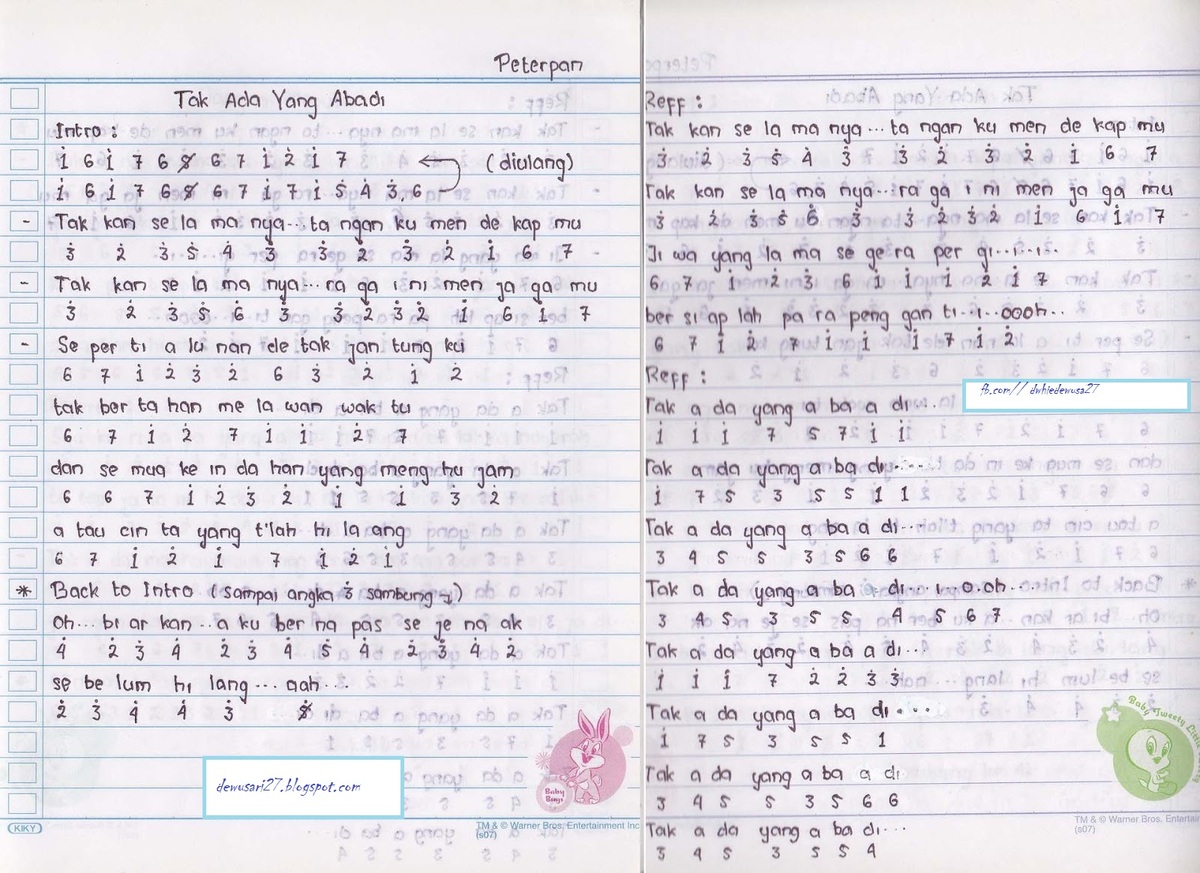 Peterpan
Tak Ada Yang Abadi
Intro :
i̇ 6 i̇ 7 6 8̸ 6 7 1̇ 2̇ 1̇ 7 (diulang)
1̇ 6 1̇ 7 6 8̸ 6 7 1̇ 7 1̇ 5̇ 4̇ 3̇, 6
- Tak kan se la ma nya... ta ngan ku men de kap mu
3̇ 2̇ 3̇ 5̇ 4̇ 3̇ 3̇ 2̇ 3̇ 2̇ 1̇ 6 7
- Tak kan se la ma nya... ra ga i ni men ja ga mu
3̇ 2̇ 3̇ 5̇ 6̇ 3̇ 3̇ 2̇ 3̇ 2̇ 1̇ 6 1̇ 7
- Se per ti a lu nan de tak jan tung ku
6 7 1̇ 2̇ 3̇ 2̇ 6 3̇ 2̇ 1̇ 2̇
tak ber ta han me la wan wak tu
6 7 1̇ 2̇ 7 1̇ 1̇ 2̇ 7
dan se mua ke in da han yang meng hu jam
6 6 7 1̇ 2̇ 3̇ 2̇ 1̇ 1̇ 3̇ 2̇
a tau cin ta yang t'lah hi la ang
6 7 1̇ 2̇ 1̇ 7 1̇ 2̇ 1̇
* Back to Intro (sampai angka 3̇ sambung ↴)
Oh... bi ar kan ...a ku ber na pas se je na ak
4̇ 2̇ 3̇ 4̇ 2̇ 3̇ 4̇ 5̇ 4̇ 2̇ 3̇ 4̇ 2̇
se be lum hi lang.... aah....
2̇ 3̇ 4̇ 4̇ 3̇
dewusari27.blogspot.com
Baby Bugs
KIKY
TM & © Warner Bros. Entertainment Inc
(s07)
Reff :
Tak kan se la ma nya... ta ngan ku men de kap mu
3̇ 2̇ 3̇ 5̇ 4̇ 3̇ 3̇ 2̇ 3̇ 2̇ 1̇ 6 7
Tak kan se la ma nya... ra ga i ni men ja ga mu
3̇ 2̇ 3̇ 5̇ 6̇ 3̇ 3̇ 2̇ 3̇ 2̇ 1̇ 6 1̇ 7
Ji wa yang la ma se ge ra per gi...i...i...
6 7 1̇ 2̇ 3̇ 6 1̇ 1̇ 1̇ 2̇ 1̇ 7
ber si ap lah pa ra peng gan ti..i..oooh..
6 7 1̇ 2̇ 7 1̇ 1̇ 1̇ 7 1̇ 2̇
Reff :
fb.com// dwhiedewusa27
Tak a da yang a ba a di....
1̇ 1̇ 1̇ 7 5 7 2̇ 1̇ 1̇
Tak a da yang a ba di......
1̇ 7 5 3 5 5 1 1
Tak a da yang a ba a di...
3 4 5 5 3 5 6 6
Tak a da yang a ba a di... i..o.oh...
3 4 5 3 5 5 4 5 6 7
Tak a da yang a ba a di...
1̇ 1̇ 1̇ 7 2̇ 2̇ 3̇ 3̇
Tak a da yang a ba di....
1̇ 7 5 3 5 5 1
Tak a da yang a ba a di
3 4 5 5 3 5 6 6
Tak a da yang a ba di...
3 4 5 3 5 5 4
Baby Tweety
TM & © Warner Bros. Entertain
(s07)